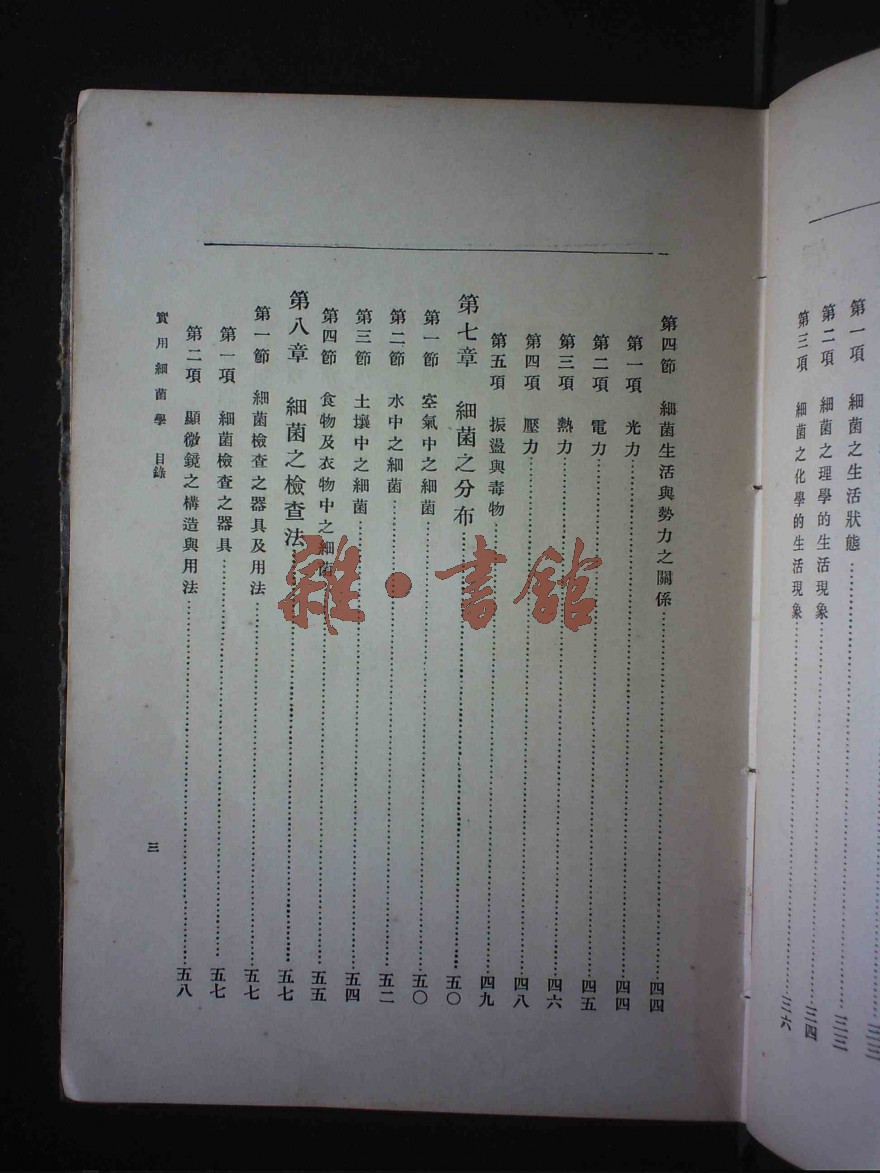 第一項 細菌之生活狀態……三三
第二項 細菌之理學的生活現象……三四
第三項 細菌之化學的生活現象……三六
第四節 細菌生活與勢力之關係……四四
第一項 光力……四四
第二項 電力……四五
第三項 熱力……四六
第四項 壓力……四八
第五項 振盪與毒物……四九
第七章 細菌之分布……五〇
第一節 空氣中之細菌……五〇
第二節 水中之細菌……五二
第三節 土壤中之細菌……五四
第四節 食物及衣物中之細菌……五五
第八章 細菌之檢查法……五七
第一節 細菌檢查之器具及用法……五七
第一項 細菌檢查之器具……五七
第二項 顯微鏡之構造與用法……五八
實用細菌學 目錄
三
雜·書館